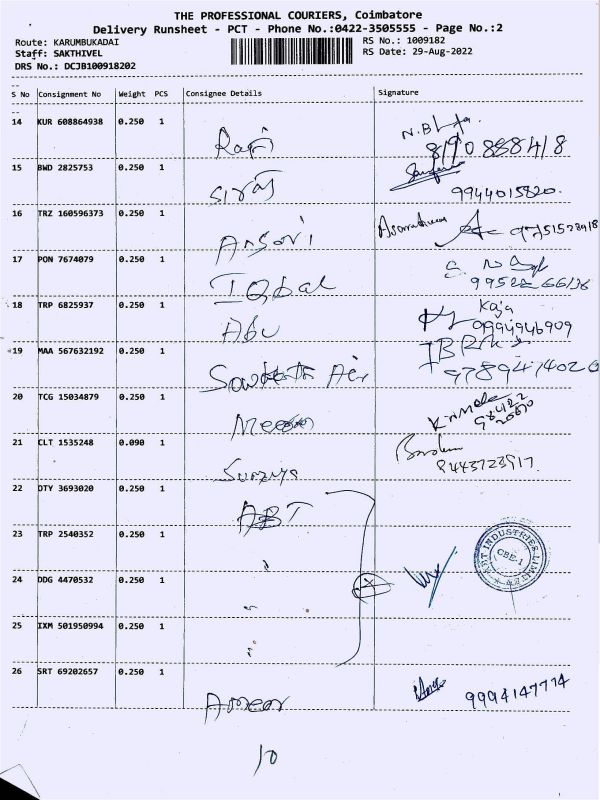 THE PROFESSIONAL COURIERS, Coimbatore
Delivery Runsheet - PCT - Phone No.:0422-3505555 - Page No.:2
Route: KARUMBUKADAI
RS No.: 1009182
Staff: SAKTHIVEL
RS Date: 29-Aug-2022
DRS No.: DCJB100918202
S No Consignment No Weight PCS Consignee Details Signature
14 KUR 608864938 0.250 1 Rafi
15 BWD 2825753 0.250 1 Siraj 9944015820.
16 TRZ 160596373 0.250 1 Ansari 9751528918
17 PON 7674079 0.250 1 IQbal
18 TRP 6825937 0.250 1 Abu Kaja 9994946909
19 MAA 567632192 0.250 1 Air 9789474020
20 TCG 15034879 0.250 1
21 CLT 1535248 0.090 1 Surziya 8443723917.
22 OTY 3693020 0.250 1 ABT
23 TRP 2540352 0.250 1
ABT INDUSTRIES LIMITED
CBE-1
24 DDG 4470532 0.250 1
25 IXM 501950994 0.250 1
26 SRT 69202657 0.250 1 Ameer 9994147774
10